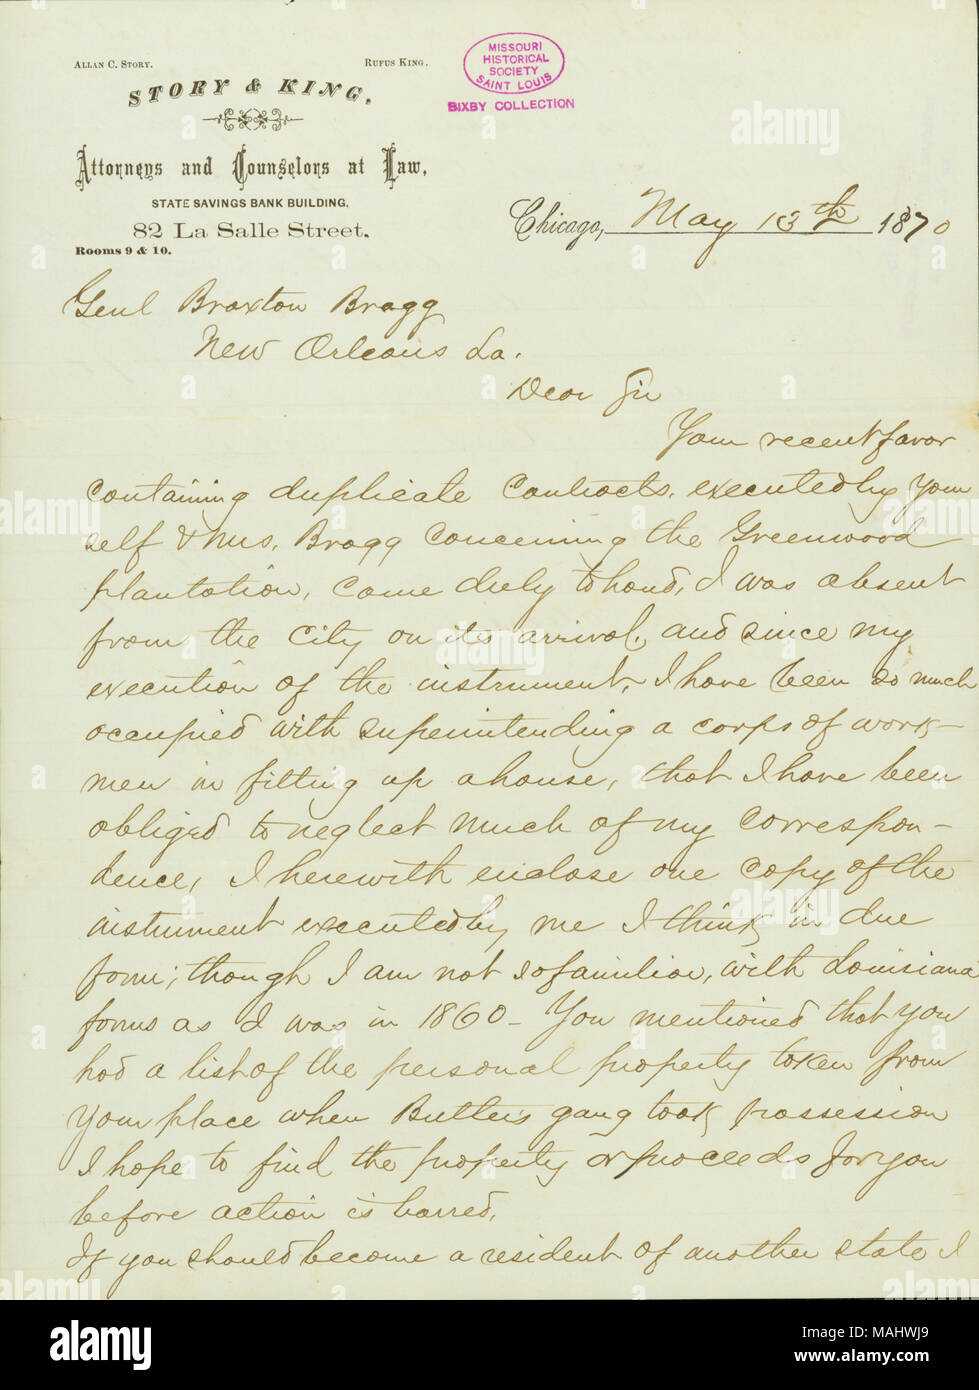 ALLAN C. STORY. RUFUS KING.
STORY & KING,
Attorneys and Counselors at Law,
STATE SAVINGS BANK BUILDING,
82 La Salle Street.
Rooms 9 & 10.
MISSOURI
HISTORICAL
SOCIETY
SAINT LOUIS
BIXBY COLLECTION
Chicago, May 13th 1870
Genl Braxton Bragg
New Orleans La.
Dear Sir
Your recent favor
containing duplicate contracts, executed by your
self & Mrs. Bragg concerning the Greenwood
plantation, came duly to hand, I was absent
from the city on its arrival, and since my
execution of the instrument, I have been so much
occupied with superintending a corps of work-
men in fitting up a house, that I have been
obliged to neglect much of my correspon-
dence, I herewith enclose one copy of the
instrument executed by me I think in due
form; though I am not so familiar, with Louisiana
forms as I was in 1860 - You mentioned that you
had a list of the personal property taken from
your place when Butler's gang took possession
I hope to find the property or proceeds for you
before action is barred.
If you should become a resident of another state I
alamy
Image ID: MAHWJ9
www.alamy.com